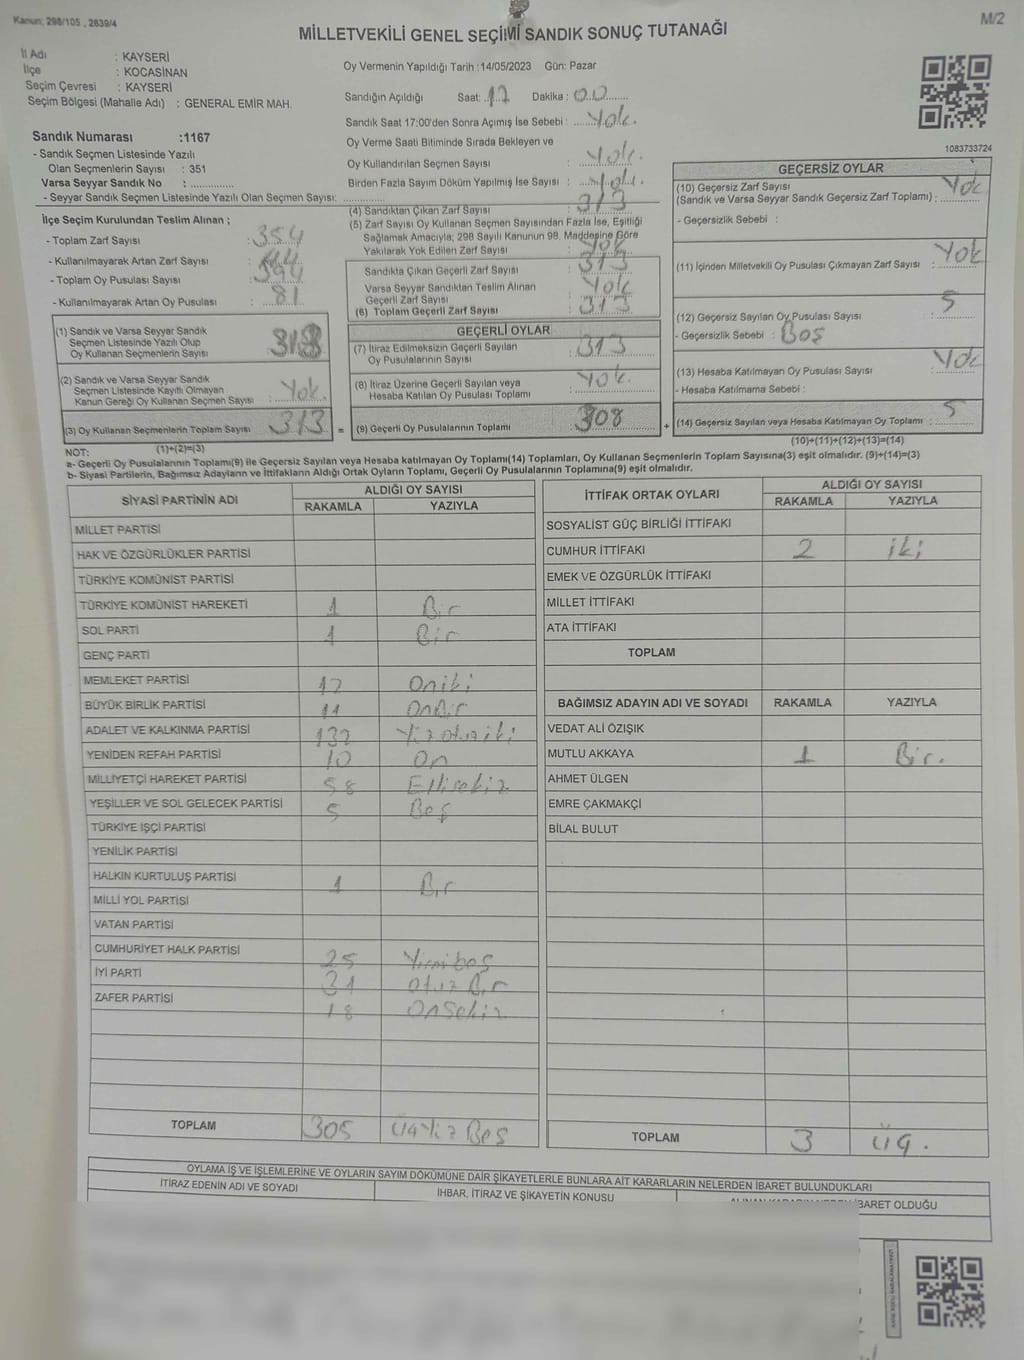 Kanun; 298/105 , 2839/4
M/2
MİLLETVEKİLİ GENEL SEÇİMİ SANDIK SONUÇ TUTANAĞI
İl Adı : KAYSERİ
İlçe : KOCASİNAN
Seçim Çevresi : KAYSERİ
Seçim Bölgesi (Mahalle Adı) : GENERAL EMİR MAH.
Sandık Numarası :1167
- Sandık Seçmen Listesinde Yazılı
Olan Seçmenlerin Sayısı : 351
Varsa Seyyar Sandık No : ..............
- Seyyar Sandık Seçmen Listesinde Yazılı Olan Seçmen Sayısı: ..............
Oy Vermenin Yapıldığı Tarih :14/05/2023 Gün: Pazar
Sandığın Açıldığı Saat: 17 Dakika : 00
Sandık Saat 17:00'den Sonra Açımış İse Sebebi : Yok.
Oy Verme Saati Bitiminde Sırada Bekleyen ve
Oy Kullandırılan Seçmen Sayısı : Yok.
Birden Fazla Sayım Döküm Yapılmış İse Sayısı : Yok.
1083733724
İlçe Seçim Kurulundan Teslim Alınan ;
- Toplam Zarf Sayısı : 354
- Kullanılmayarak Artan Zarf Sayısı :
- Toplam Oy Pusulası Sayısı : 394
- Kullanılmayarak Artan Oy Pusulası : 81
(1) Sandık ve Varsa Seyyar Sandık
Seçmen Listesinde Yazılı Olup
Oy Kullanan Seçmenlerin Sayısı 313
(2) Sandık ve Varsa Seyyar Sandık
Seçmen Listesinde Kayıtlı Olmayan
Kanun Gereği Oy Kullanan Seçmen Sayısı : Yok.
(3) Oy Kullanan Seçmenlerin Toplam Sayısı 313 =
(1)+(2)=(3)
(4) Sandıktan Çıkan Zarf Sayısı : 313
(5) Zarf Sayısı Oy Kullanan Seçmen Sayısından Fazla İse, Eşitliği
Sağlamak Amacıyla; 298 Sayılı Kanunun 98. Maddesine Göre
Yakılarak Yok Edilen Zarf Sayısı : Yok
Sandıkta Çıkan Geçerli Zarf Sayısı : 313
Varsa Seyyar Sandıktan Teslim Alınan
Geçerli Zarf Sayısı : Yok
(6) Toplam Geçerli Zarf Sayısı : 313
GEÇERLİ OYLAR
(7) İtiraz Edilmeksizin Geçerli Sayılan
Oy Pusulalarının Sayısı : 313
(8) İtiraz Üzerine Geçerli Sayılan veya
Hesaba Katılan Oy Pusulası Toplamı : Yok.
(9) Geçerli Oy Pusulalarının Toplamı : 308 +
GEÇERSİZ OYLAR
(10) Geçersiz Zarf Sayısı
(Sandık ve Varsa Seyyar Sandık Geçersiz Zarf Toplamı) : Yok
- Geçersizlik Sebebi :
(11) İçinden Milletvekili Oy Pusulası Çıkmayan Zarf Sayısı : Yok
(12) Geçersiz Sayılan Oy Pusulası Sayısı : 5
- Geçersizlik Sebebi : Boş
(13) Hesaba Katılmayan Oy Pusulası Sayısı : Yok
- Hesaba Katılmama Sebebi :
(14) Geçersiz Sayılan veya Hesaba Katılmayan Oy Toplamı : 5
(10)+(11)+(12)+(13)=(14)
NOT:
a- Geçerli Oy Pusulalarının Toplamı(9) ile Geçersiz Sayılan veya Hesaba katılmayan Oy Toplamı(14) Toplamları, Oy Kullanan Seçmenlerin Toplam Sayısına(3) eşit olmalıdır. (9)+(14)=(3)
b- Siyasi Partilerin, Bağımsız Adayların ve İttifakların Aldığı Ortak Oyların Toplamı, Geçerli Oy Pusulalarının Toplamına(9) eşit olmalıdır.
SİYASİ PARTİNİN ADI ALDIĞI OY SAYISI
RAKAMLA YAZIYLA
MİLLET PARTİSİ
HAK VE ÖZGÜRLÜKLER PARTİSİ
TÜRKİYE KOMÜNİST PARTİSİ
TÜRKİYE KOMÜNİST HAREKETİ 1 Bir
SOL PARTİ 1 Bir
GENÇ PARTİ
MEMLEKET PARTİSİ 12 Oniki
BÜYÜK BİRLİK PARTİSİ 11 OnBir
ADALET VE KALKINMA PARTİSİ 132 Yüzotuziki
YENİDEN REFAH PARTİSİ 10 On
MİLLİYETÇİ HAREKET PARTİSİ 58 Ellisekiz
YEŞİLLER VE SOL GELECEK PARTİSİ 5 Beş
TÜRKİYE İŞÇİ PARTİSİ
YENİLİK PARTİSİ
HALKIN KURTULUŞ PARTİSİ 1 Bir
MİLLİ YOL PARTİSİ
VATAN PARTİSİ
CUMHURİYET HALK PARTİSİ 25 Yirmibeş
İYİ PARTİ 31 Otuz Bir
ZAFER PARTİSİ 18 OnSekiz
TOPLAM 305 ÜçYüz Beş
İTTİFAK ORTAK OYLARI ALDIĞI OY SAYISI
RAKAMLA YAZIYLA
SOSYALİST GÜÇ BİRLİĞİ İTTİFAKI
CUMHUR İTTİFAKI 2 iki
EMEK VE ÖZGÜRLÜK İTTİFAKI
MİLLET İTTİFAKI
ATA İTTİFAKI
TOPLAM
BAĞIMSIZ ADAYIN ADI VE SOYADI RAKAMLA YAZIYLA
VEDAT ALİ ÖZIŞIK
MUTLU AKKAYA 1 Bir.
AHMET ÜLGEN
EMRE ÇAKMAKÇİ
BİLAL BULUT
TOPLAM 3 Üç.
OYLAMA İŞ VE İŞLEMLERİNE VE OYLARIN SAYIM DÖKÜMÜNE DAİR ŞİKAYETLERLE BUNLARA AİT KARARLARIN NELERDEN İBARET BULUNDUKLARI
İTİRAZ EDENİN ADI VE SOYADI İHBAR, İTİRAZ VE ŞİKAYETİN KONUSU İBARET OLDUĞU